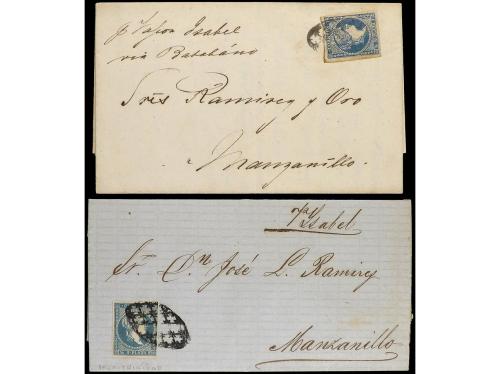 p. Vapor Isabel
via Batabáno
Srẽs Ramirez y Oro
Manzanillo.
v/a Isabel
Sr. Dn. José L. Ramirez
Manzanillo